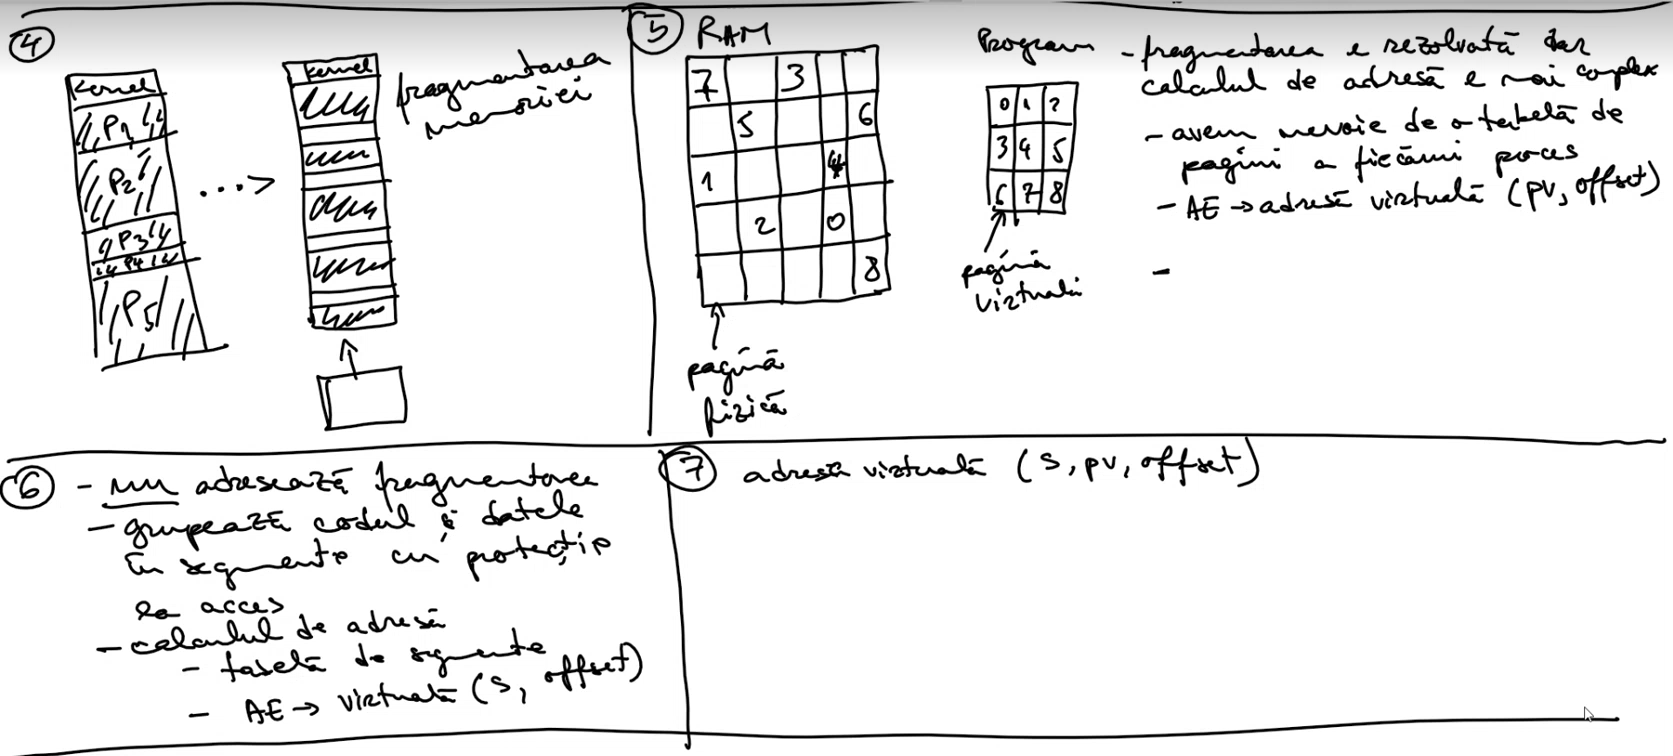 4
Kernel
P1
P2
P3
P4
P5
...
Kernel
fragmentarea
memoriei
5 RAM
7 3
5 6
1 4
2 0
8
pagină
fizică
Program
0 1 2
3 4 5
6 7 8
pagină
virtuală
- fragmentarea e rezolvată dar
calculul de adresă e mai complex
- avem nevoie de o tabelă de
pagini a fiecărui proces
- AE → adresă virtuală (pv, offset)
-
6 - nu adresează fragmentarea
- grupează codul și datele
în segmente cu protecție
la acces
- calculul de adresă
- tabelă de segmente
- AE → virtuală (s, offset)
7 adresă virtuală (s, pv, offset)